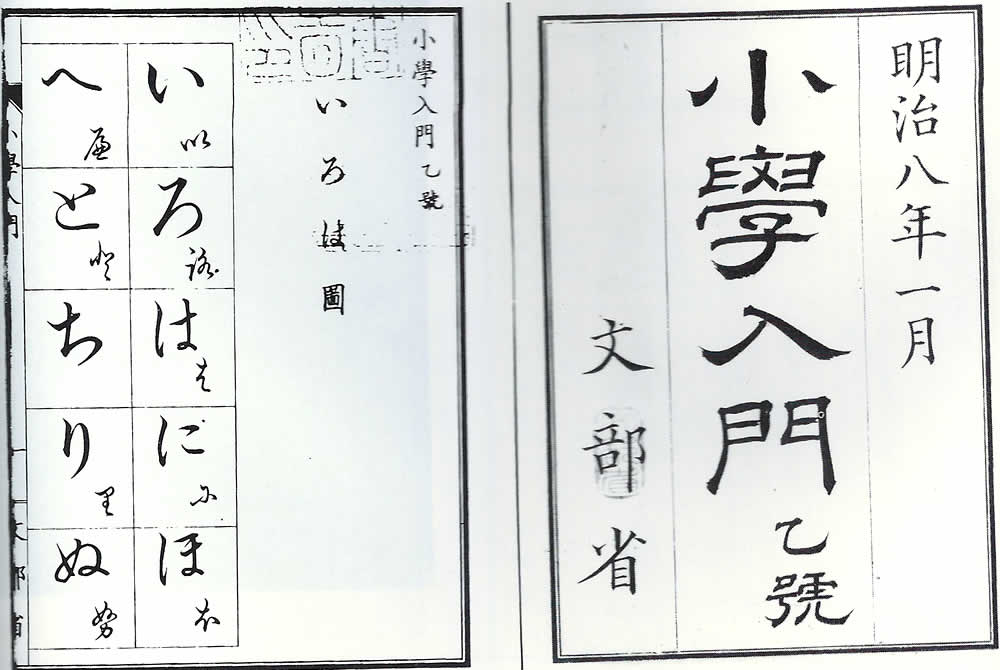 明治八年一月
小學入門 乙號
文部省
小學入門乙號
いろは圖
い 以
ろ 路
は
に 尓
ほ
へ
と 登
ち
り 里
ぬ 努
小學入門 一 文部省